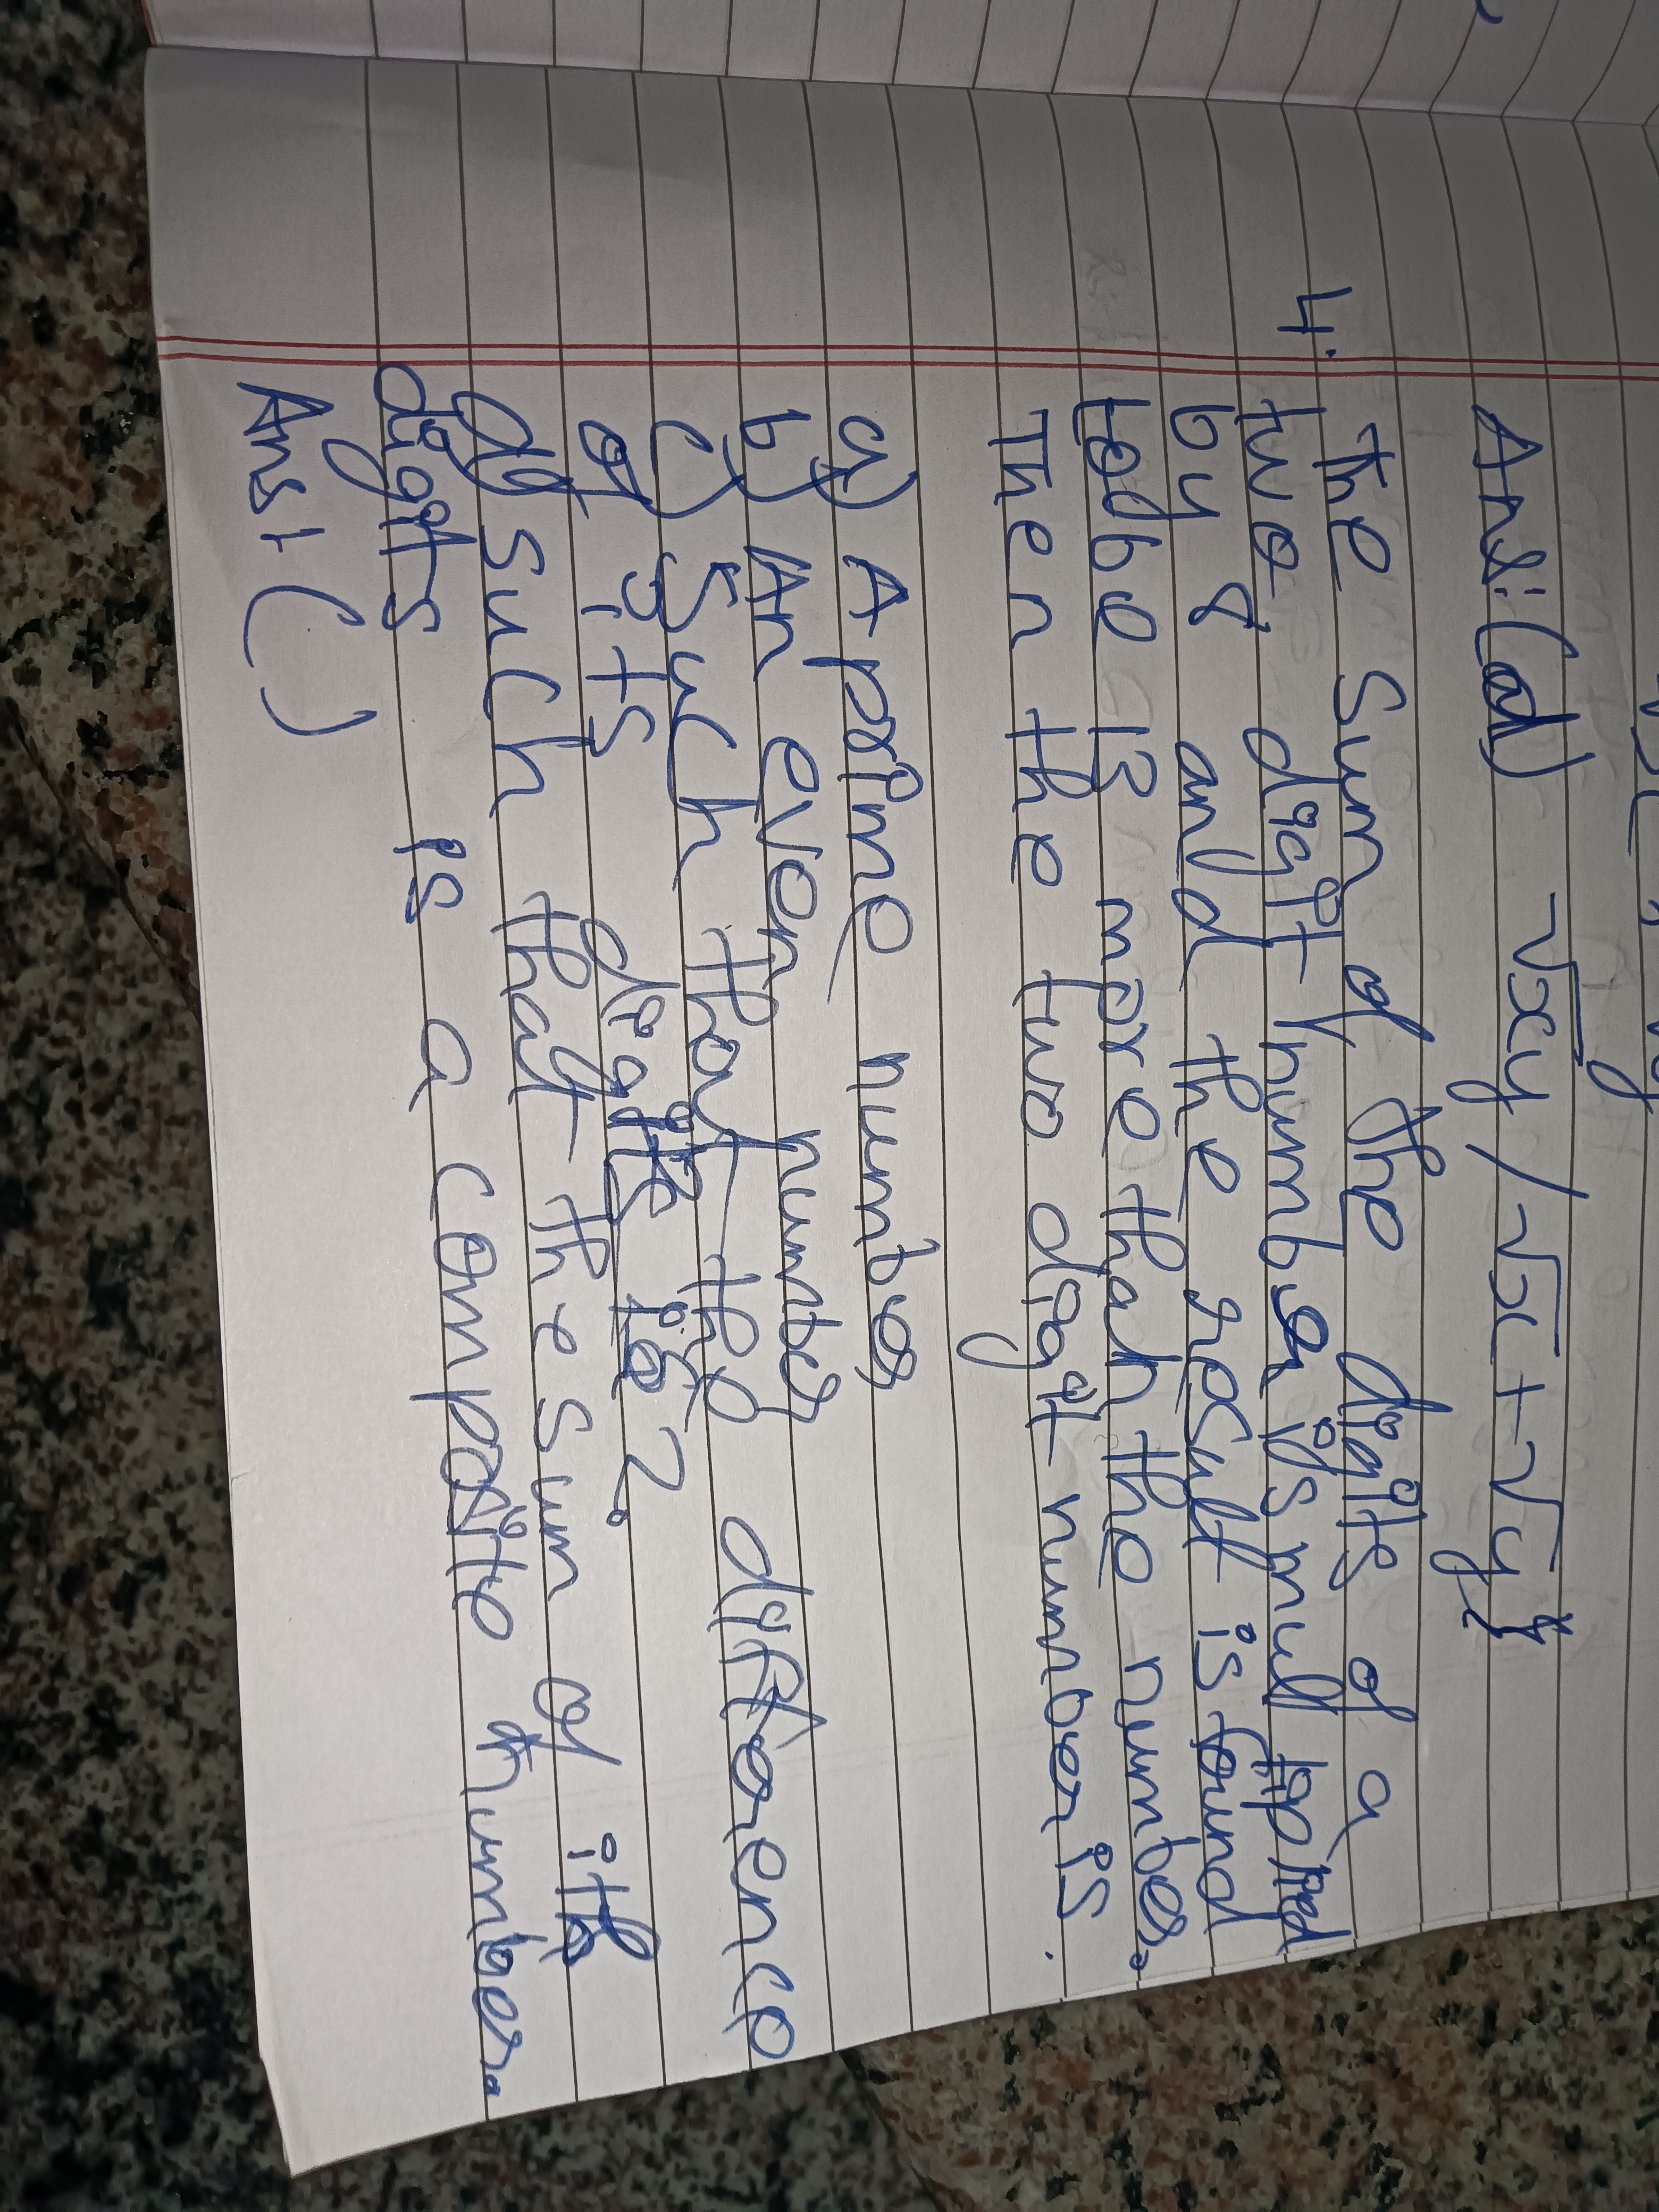 Ans:(d) √xy / √x + √y}
4. The sum of the digits of a
two digit number is multiplied
by 8 and the result is found
to be 13 more than the number.
Then the two digit number is.
a) A prime number
b) An even number
c) Such that the difference
of its digits is 2.
d) such that the sum of its
digits is a composite number.
Ans: ( )